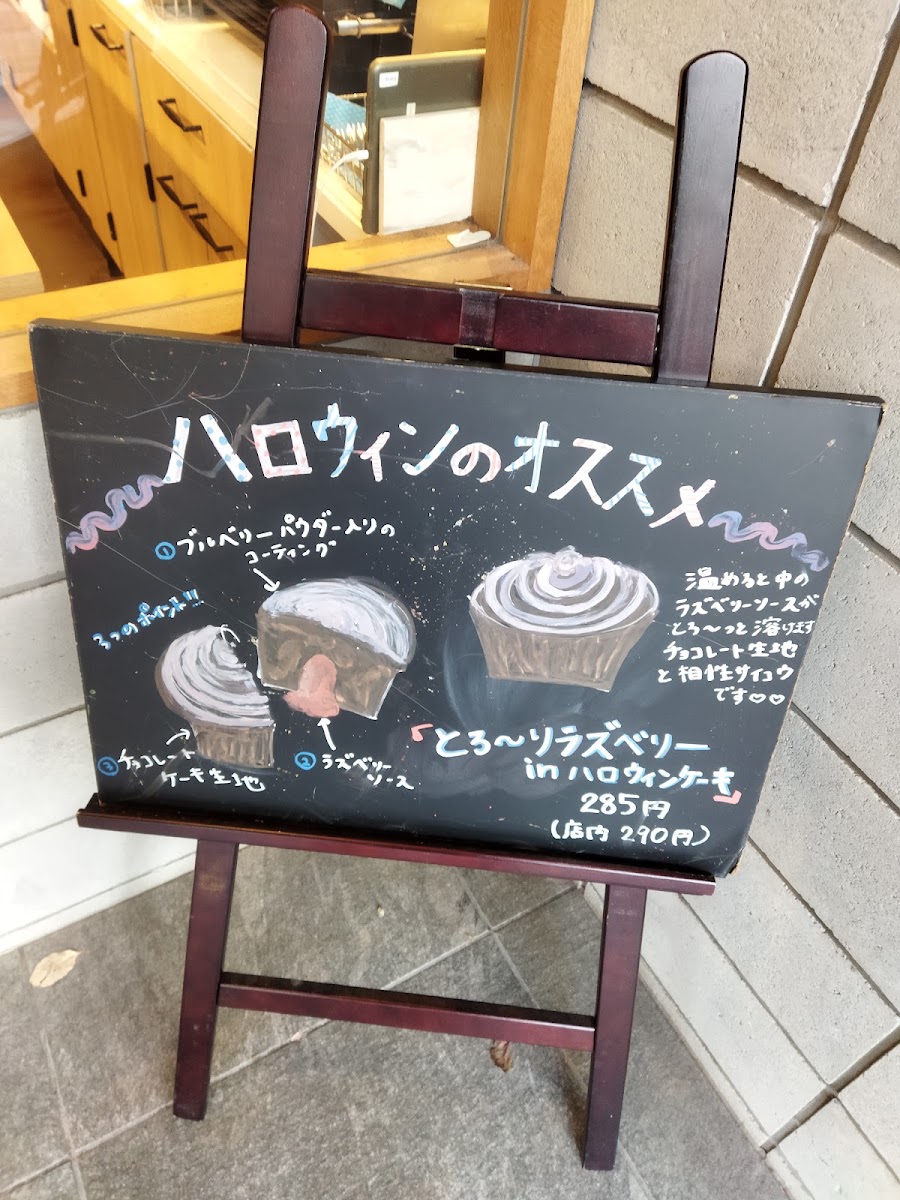 ハロウィンのオススメ
①ブルベリーパウダー入りの
コーティング
3つのポイント!!!
③チョコレート
ケーキ生地
②ラズベリー
ソース
温めると中の
ラズベリーソースが
とろ〜っと溶けます
チョコレート生地
と相性サイコウ
です♡♡
『とろ〜りラズベリー
inハロウィンケーキ』
285円
(店内 290円)